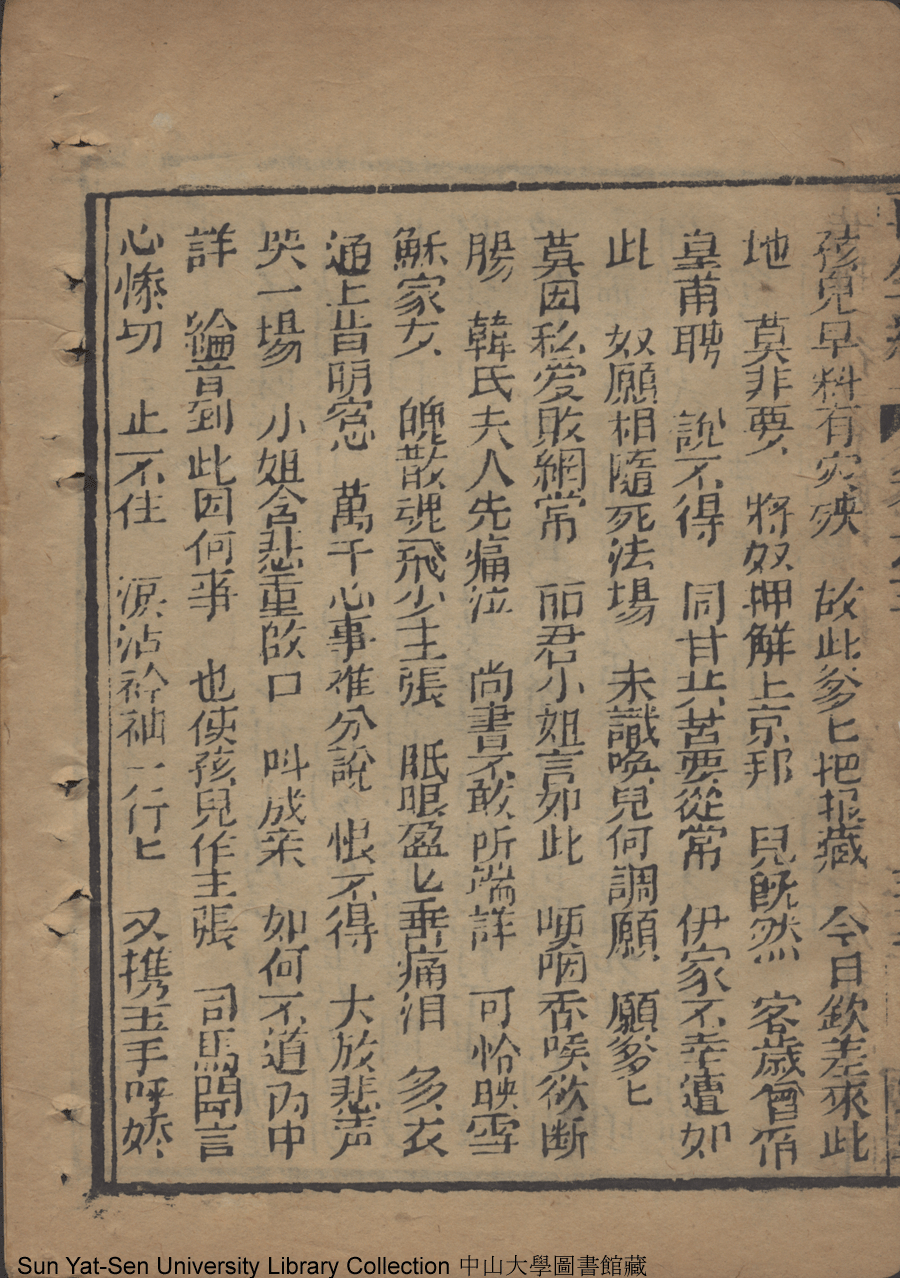 孩兒早料有灾殃 故此爹匕把掍藏 今日欽差來此
地 莫非要 將奴押解上京邦 兒旣然 客歲曾俻
皇甫聘 說不得 同甘共苦要從常 伊家不幸遭如
此 奴願相隨死法場 未識喚兒何調願 願爹匕
莫因私爱敗網常 丽君小姐言如此 哽咽吞唉欲断
腸 韓氏夫人先痛泣 尚書不敢所端詳 可恰映雪
穌家女 魄散魂飛少主張 眠眼盈匕垂痛泪 多衣
通上皆明窓 萬千心事难分說 恨不得 大放悲声
哭一場 小姐含悲重啟口 叫成亲 如何不道內中
詳 綸音到此因何事 也使孩兒作主張 司馬聞言
心慘切 止不住 淚沾衿袖一行匕 又携玉手呼娇
Sun Yat-Sen University Library Collection 中山大學圖書館藏